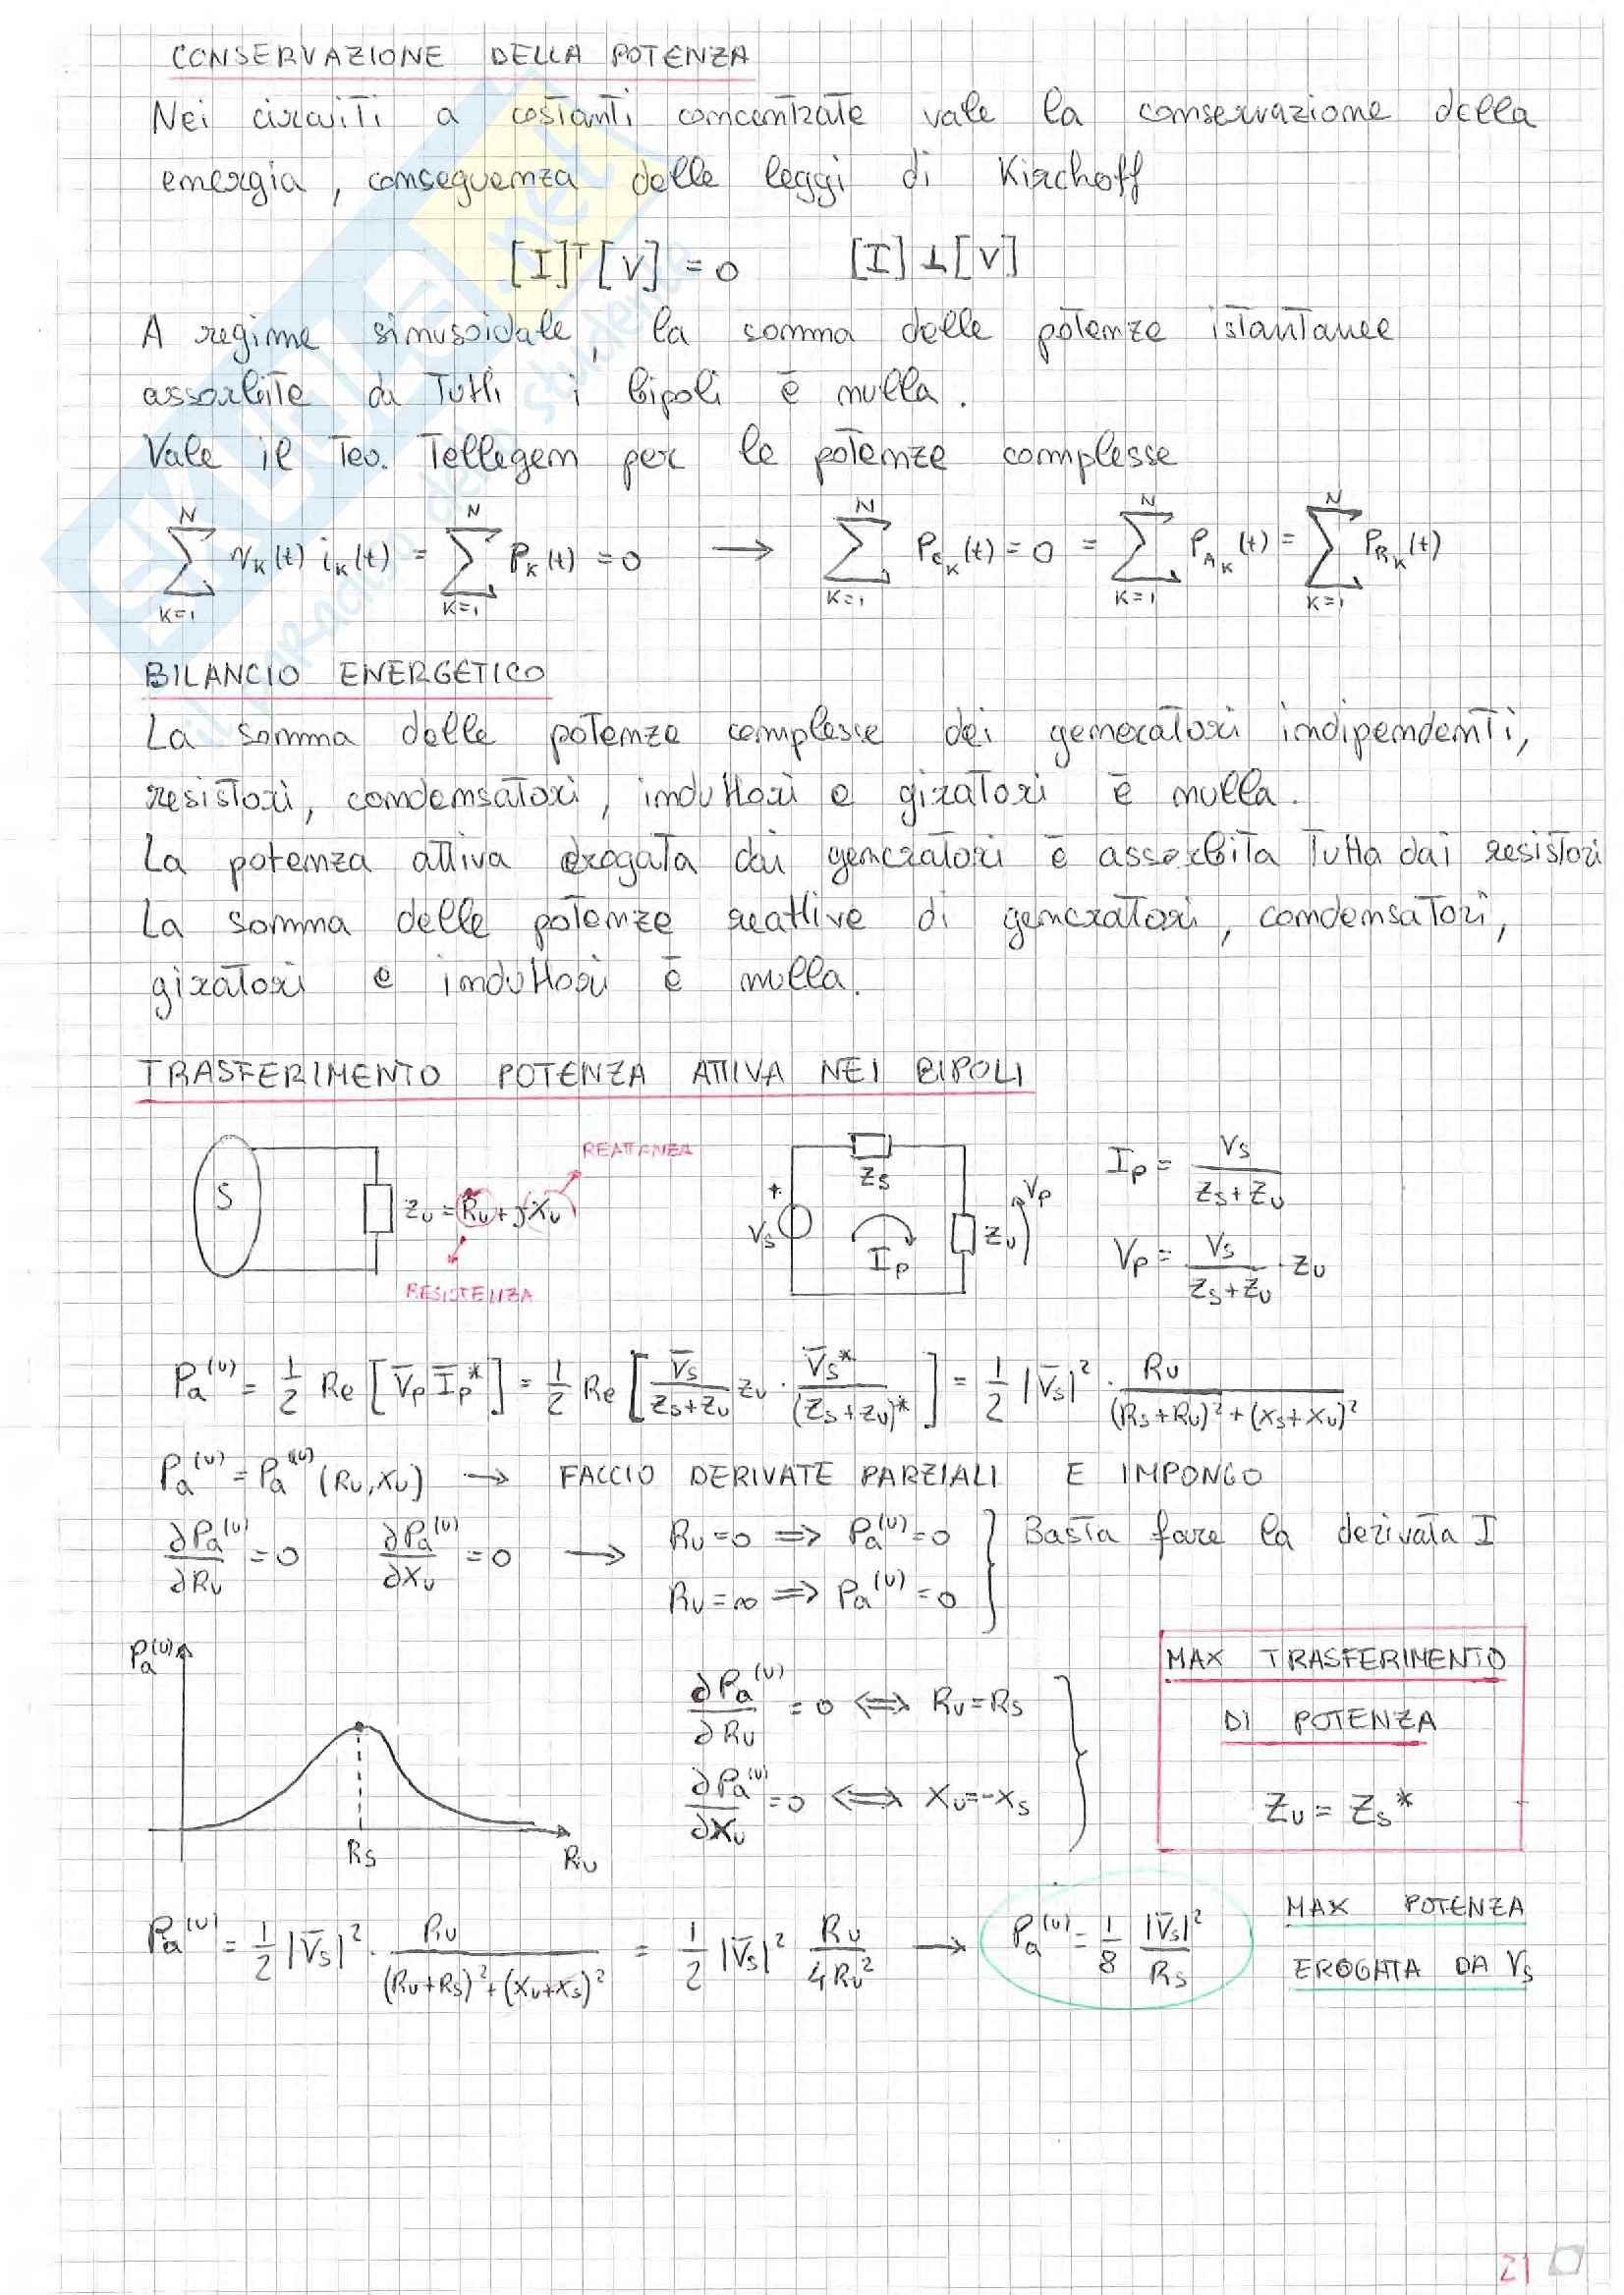 CONSERVAZIONE DELLA POTENZA
Nei circuiti a costanti concentrate vale la conservazione della
energia, conseguenza delle leggi di Kirchoff
[I]ᵀ[V] = 0 [I] ⊥ [V]
A regime sinusoidale, la somma delle potenze istantanee
assorbite da tutti i bipoli è nulla.
Vale il Teo. Tellegen per le potenze complesse
∑_{K=1}^{N} v_K(t) i_K(t) = ∑_{K=1}^{N} P_K(t) = 0 → ∑_{K=1}^{N} P_{C_K}(t) = 0 = ∑_{K=1}^{N} P_{A_K}(t) = ∑_{K=1}^{N} P_{R_K}(t)
BILANCIO ENERGETICO
La somma delle potenze complesse dei generatori indipendenti,
resistori, condensatori, induttori e giratori è nulla.
La potenza attiva erogata dai generatori è assorbita tutta dai resistori
La somma delle potenze reattive di generatori, condensatori,
giratori e induttori è nulla.
TRASFERIMENTO POTENZA ATTIVA NEI BIPOLI
S
Z_U = R_U + jX_U
REATTANZA
RESISTENZA
+
V_S
Z_S
I_P
Z_U
V_P
I_P = V_S / (Z_S + Z_U)
V_P = V_S / (Z_S + Z_U) · Z_U
P_a^(U) = 1/2 Re [V̄_P Ī_P*] = 1/2 Re [V̄_S / (Z_S + Z_U) Z_U · V̄_S* / (Z_S + Z_U)*] = 1/2 |V̄_S|² · R_U / ((R_S + R_U)² + (X_S + X_U)²)
P_a^(U) = P_a^(U) (R_U, X_U) → FACCIO DERIVATE PARZIALI E IMPONGO
∂P_a^(U)/∂R_U = 0 ∂P_a^(U)/∂X_U = 0 → R_U = 0 ⟹ P_a^(U) = 0
R_U = ∞ ⟹ P_a^(U) = 0
} Basta fare la derivata I
P_a^(U)
R_S
R_U
∂P_a^(U)/∂R_U = 0 ⟺ R_U = R_S
∂P_a^(U)/∂X_U = 0 ⟺ X_U = -X_S
MAX TRASFERIMENTO
DI POTENZA
Z_U = Z_S*
P_a^(U) = 1/2 |V̄_S|² · R_U / ((R_U + R_S)² + (X_U + X_S)²) = 1/2 |V̄_S|² R_U / 4R_U² → P_a^(U) = 1/8 |V̄_S|² / R_S
MAX POTENZA
EROGATA DA V_S
21